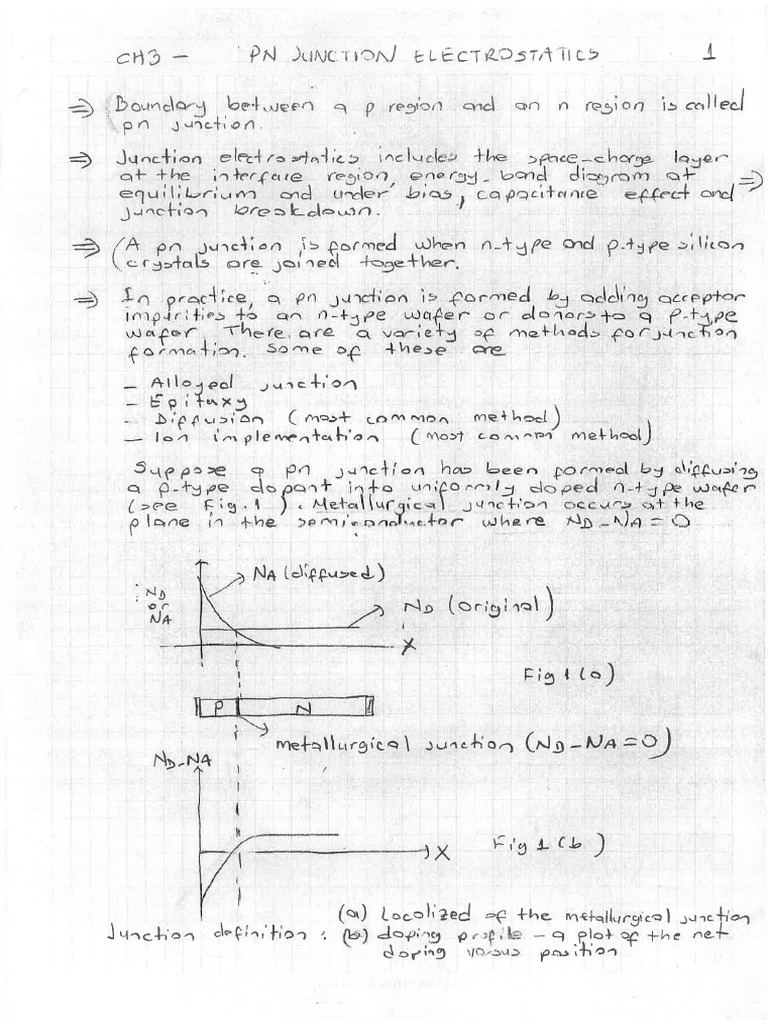 CH3 - PN JUNCTION ELECTROSTATICS 1
⇒ Boundary between a p region and an n region is called
pn junction.
⇒ Junction electrostatics includes the space-charge layer
at the interface region, energy-band diagram at
equilibrium and under bias, capacitance effect and ⇒
junction breakdown.
⇒ (A pn junction is formed when n-type and p-type silicon
(crystals are joined together.
⇒ In practice, a pn junction is formed by adding acceptor
impurities to an n-type wafer or donors to a p-type
wafer. There are a variety of methods for junction
formation. Some of these are
- Alloyed junction
- Epitaxy
- Diffusion (most common method)
- Ion implementation (most common method)
Suppose a pn junction has been formed by diffusing
a p-type dopant into uniformly doped n-type wafer
(see Fig.1). Metallurgical junction occurs at the
plane in the semiconductor where ND-NA=0
NA (diffused)
ND
or
NA
ND (original)
X
Fig 1 (a)
P N
metallurgical junction (ND-NA=0)
ND-NA
X
Fig 1 (b)
(a) Localized of the metallurgical junction
Junction definition : (b) doping profile - a plot of the net
doping versus position